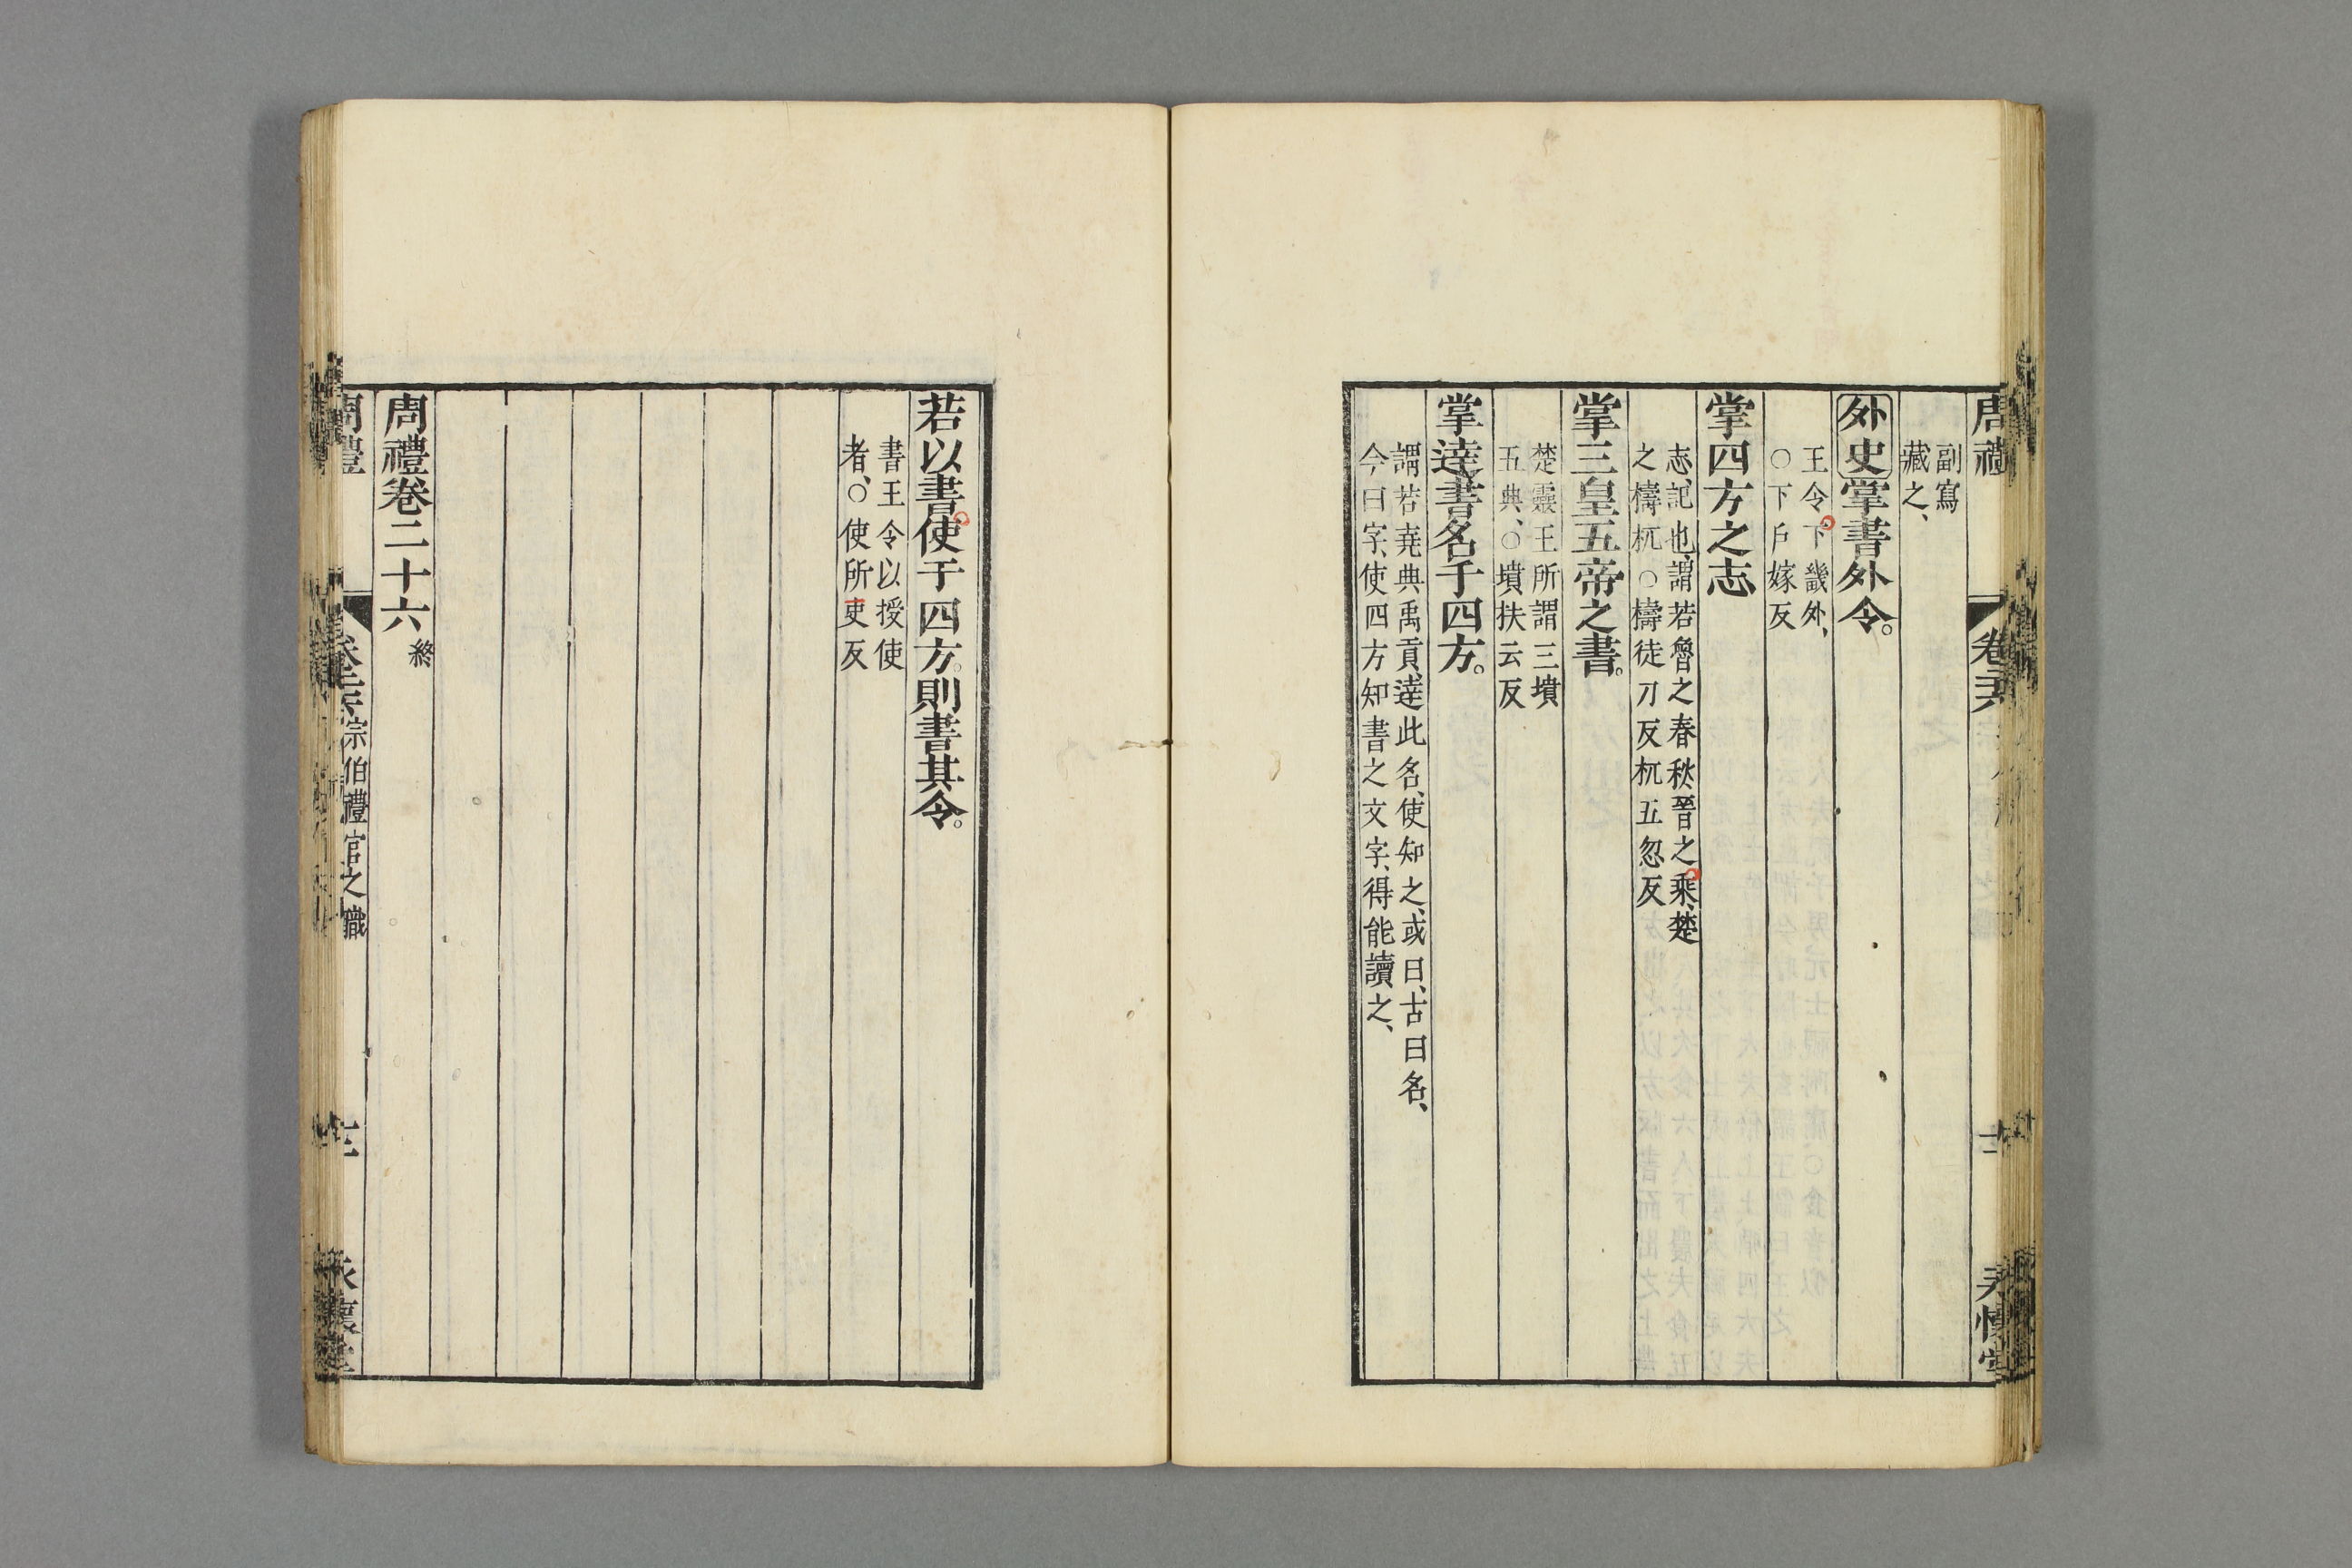 周禮 卷二十六 永懷堂
副寫
藏之、
外史掌書外令。
王令下畿外、
○下戶嫁反
掌四方之志
志、記也、謂若魯之春秋、晉之乘、楚
之檮杌○檮徒刀反杌五忽反
掌三皇五帝之書。
楚靈王所謂三墳
五典、○墳扶云反
掌達書名于四方。
謂若堯典禹貢、達此名、使知之、或曰、古曰名、
今曰字、使四方知書之文字、得能讀之、
若以書使于四方。則書其令。
書王令以授使
者、○使所吏反
周禮卷二十六 終
周禮 卷二十六 宗伯禮官之職 十三 永懷堂